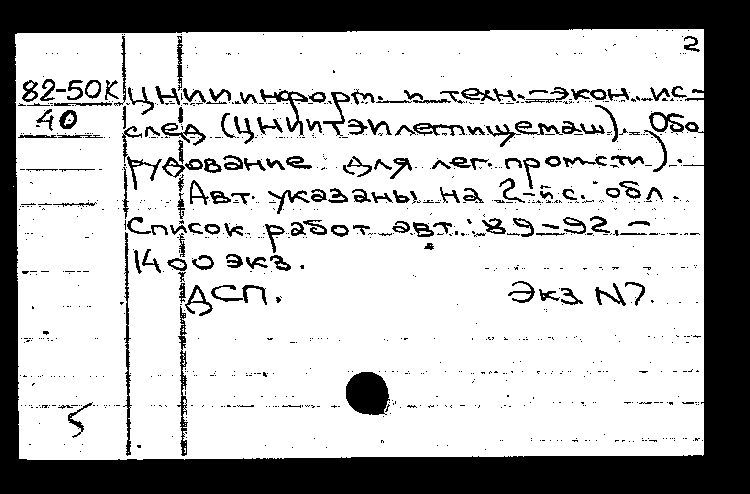 2
82-50К ЦНИИ информ. и техн.-экон. ис-
40 след (ЦНИИТЭИлегпищемаш). Обо
рудование для лег. пром-сти).
Авт. указаны на 2-й с. обл.
Список работ авт.: 89-92. -
1400 экз.
ДСП. Экз. N7.
5